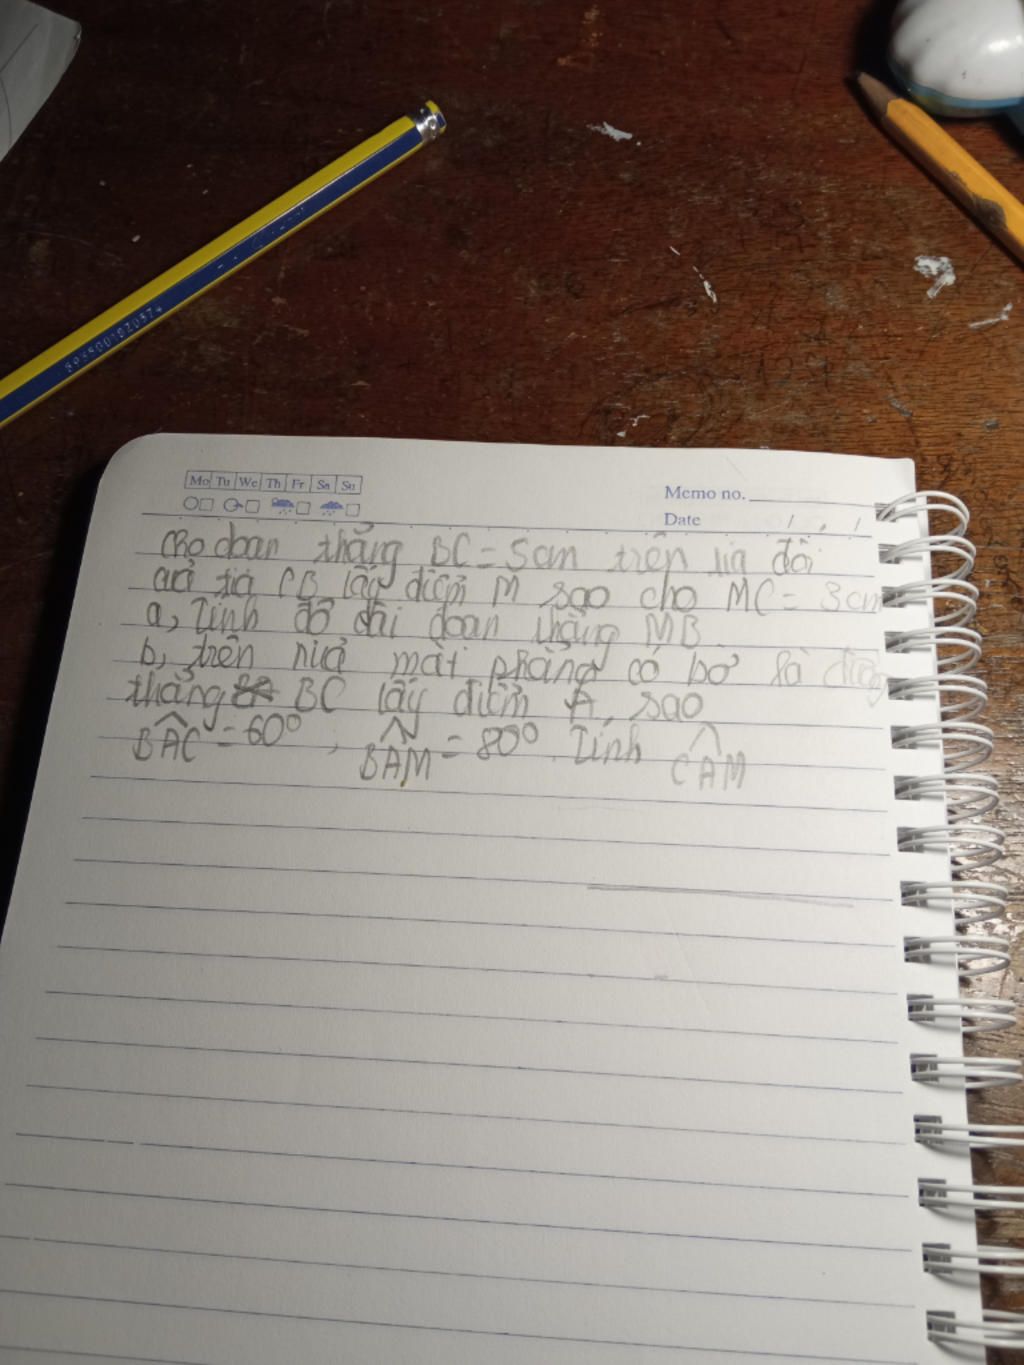 8935001820374
Mo Tu We Th Fr Sa Su
Memo no.
Date / /
Cho đoạn thẳng BC = 5cm trên tia đối
của tia CB lấy điểm M sao cho MC = 3cm
a, Tính độ dài đoạn thẳng MB
b, trên nửa mặt phẳng có bờ là đường
thẳng BC lấy điểm A, sao
BAC = 60° , BAM = 80° . Tính CAM